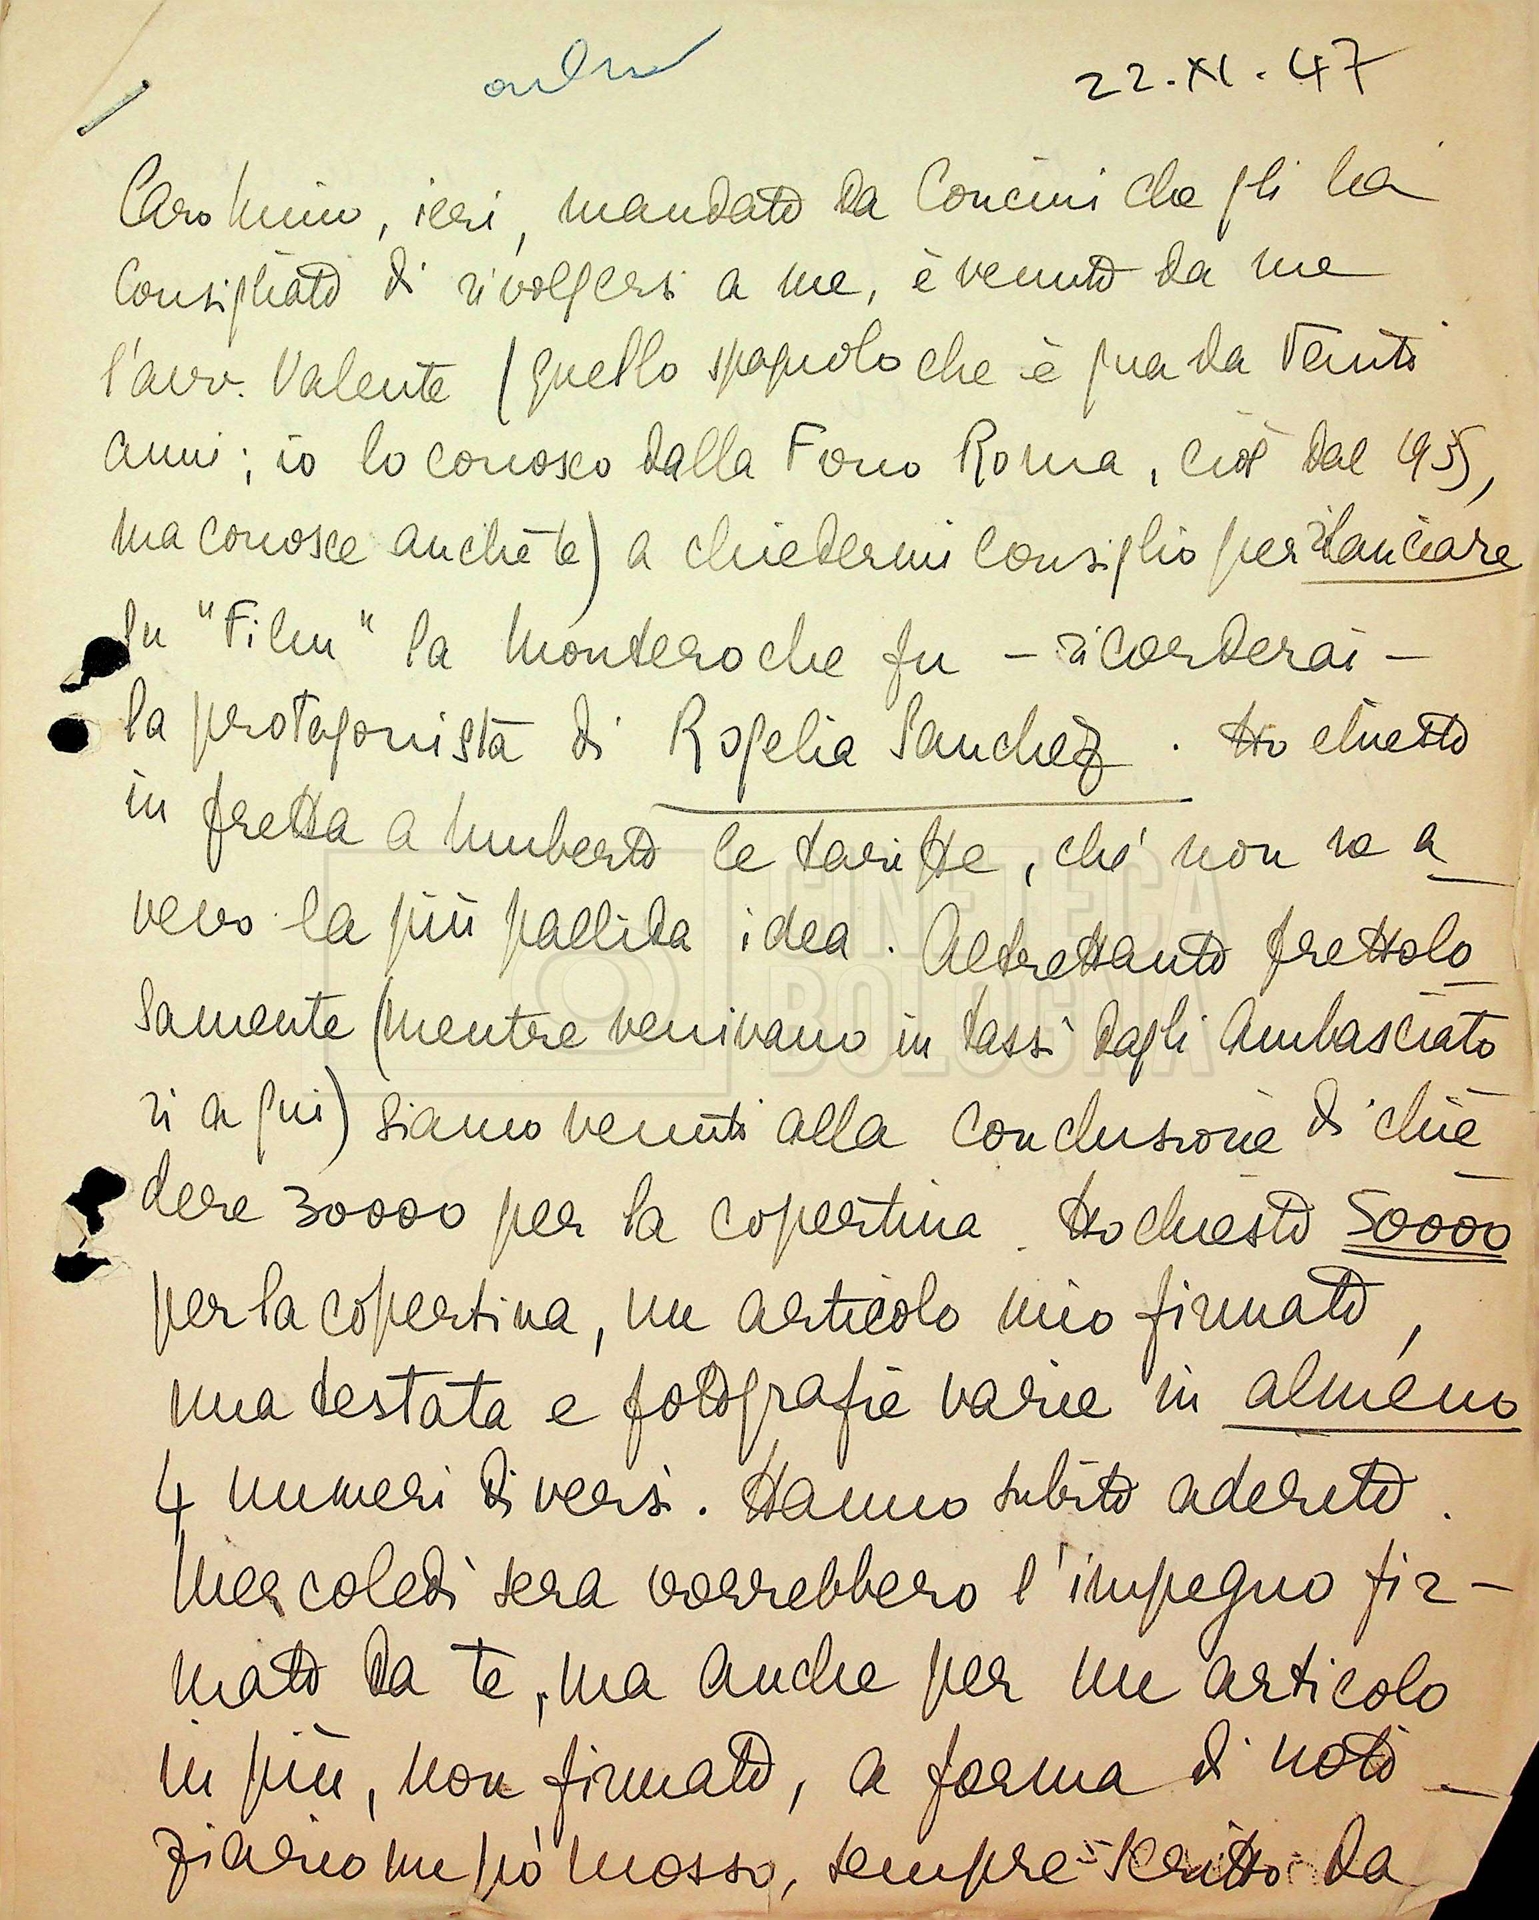 22.XI.47
Caro Mino, ieri, mandato da Concini che gli ha
consigliato di rivolgersi a me, è venuto da me
l'avv. Valente (quello spagnolo che è qua da venti
anni; io lo conosco dalla Fono Roma, cioè dal 1935,
ma conosce anche te) a chiedermi consiglio per rilanciare
su "Film" la Montero che fu - ricorderai -
la protagonista di Rogelia Sanchez. Ho chiesto
in fretta a Umberto le tariffe, ché non ne a
vevo la più pallida idea. Altrettanto frettolo
samente (mentre venivano in tassì dagli Ambasciato
ri a qui) siamo venuti alla conclusione di chie
dere 30000 per la copertina. Ho chiesto 50000
per la copertina, un articolo mio firmato,
una testata e fotografie varie in almeno
4 numeri diversi. Hanno subito aderito.
Mercoledì sera vorrebbero l'impegno fir-
mato da te, ma anche per un articolo
in più, non firmato, a forma di noti-
ziario un pò mosso, sempre scritto da
CINETECA
BOLOGNA